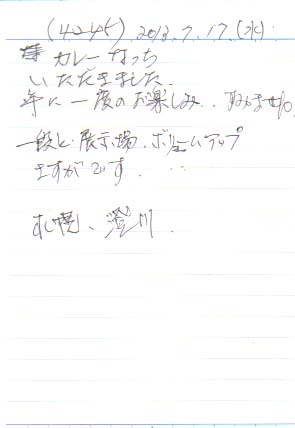 (4245) 2013.7.17.(水)
カレーなっち
いただきました.
年に一度のお楽しみ..すみません.
一段と展示場.ボリュームアップ
さすがです.
札幌、澄川.